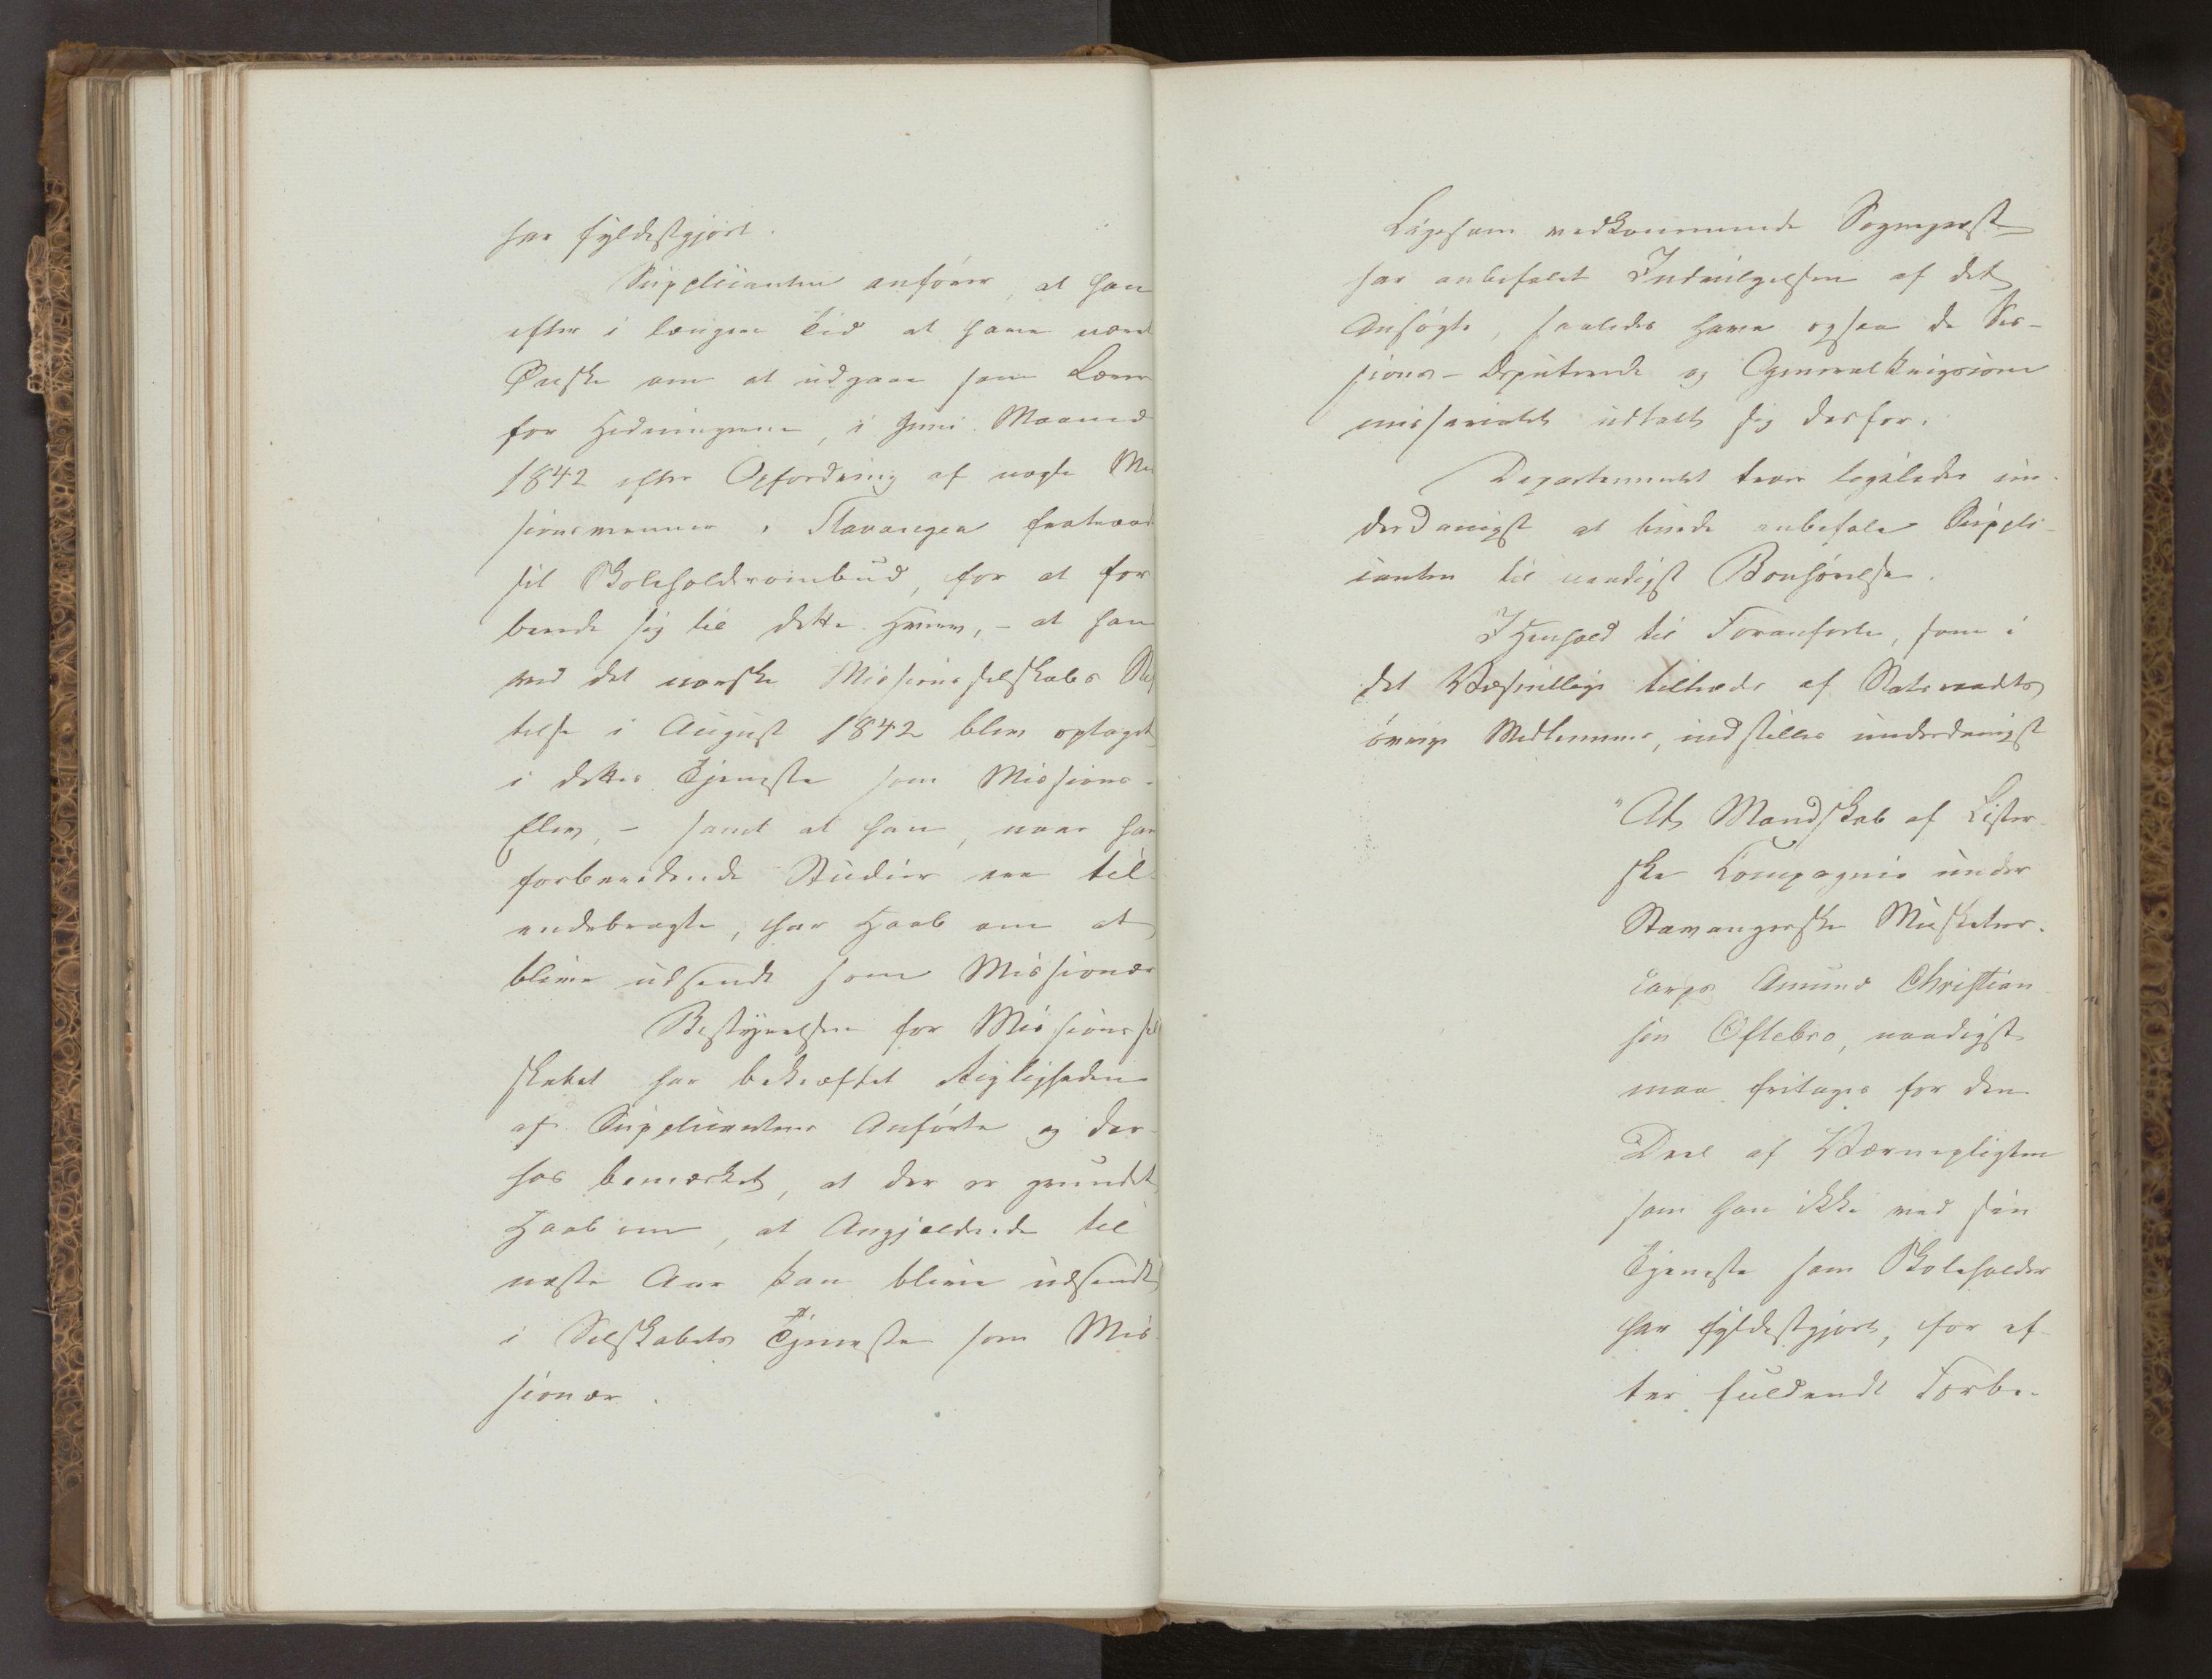 har fyldestgjort.
Supplicanten anfører, at han
efter i længere Tid at have næret
Ønske om at udgaae som Lærer
for Hedningerne, i Juni Maaned
1842 efter Opfordring af nogle Mis
sionsvenner i Stavanger fratraadte
sit Skoleholderombud, for at for
berede sig til dette Hverv, - at han
ved det norske Missionsselskabs Stif
telse i August 1842 blev optaget
i dettes Tjeneste som Missions-
Elev, - samt at han, naar hans
forberedende Studier ere til
endebragte, har Haab om at
blive udsendt som Missionær
Bestyrelsen for Missionssel
skabet har bekræftet Rigtigheden
af Supplicantens Anførte og der-
hos bemærket, at der er grundet
Haab om, at Angjældende til
næste Aar kan blive udsendt
i Selskabets Tjeneste som Mis
sionær.
Ligesom vedkommende Sognepræst
har anbefalet Indvilgelsen af det
Ansøgte, saaledes have ogsaa de Ses-
sions-Deputerede og Generalkrigscom
missariatet udtalt sig derfor.
Departementet troer ligeledes un-
derdanigst at burde anbefale Suppli-
canten til naadigst Bønhørelse.
I Henhold til Foranførte, som i
det Væsentlige tiltrædes af Statsraadets
øvrige Medlemmer, indstilles underdanigst
"At Mandskab af Lister-
ske Compagnie under
Stavangerske Musketeer-
corps Amund Christian-
sen Oftebro, naadigst
maa fritages for den
Deel af Værnepligten
som han ikke ved sin
Tjeneste som Skoleholder
har fyldestgjort, for ef-
ter fuldendt Forbe-